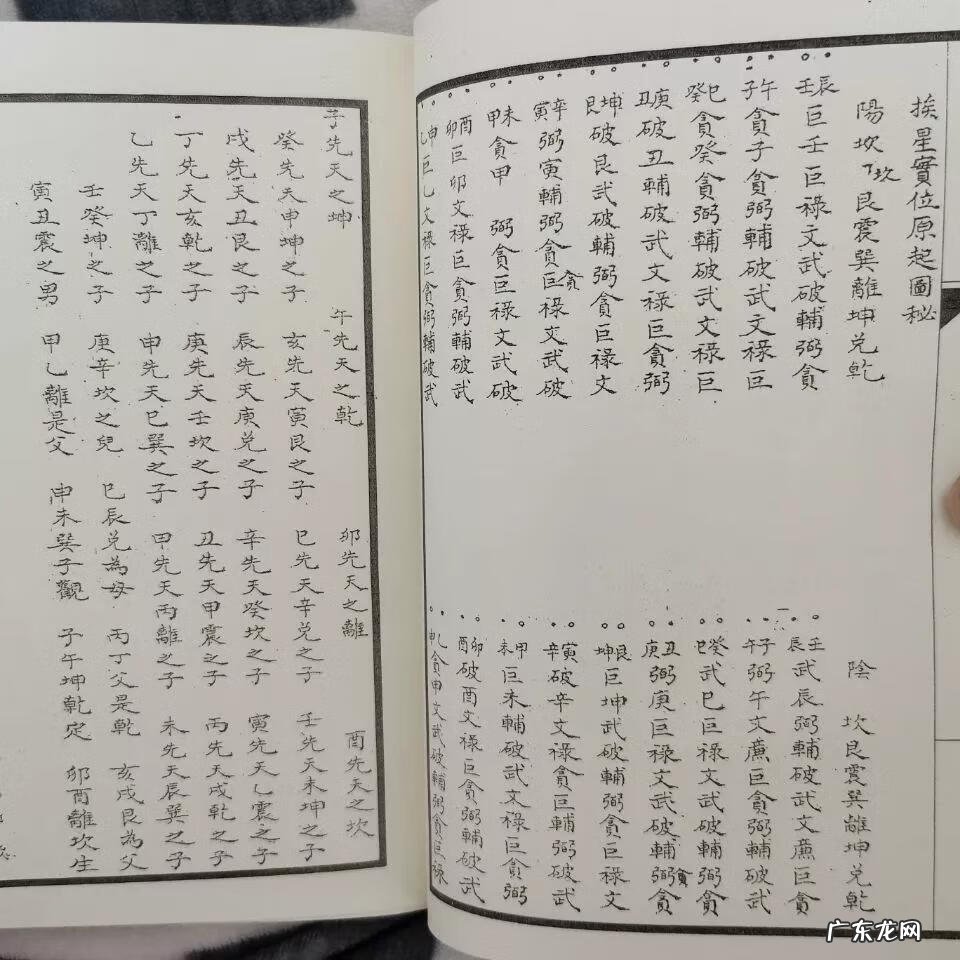 挨星實位原起圖秘
陽坎坎艮震巽離坤兌乾
辰壬巨壬巨祿文武破輔弼貪
午子貪子貪弼輔破武文祿巨
巳癸貪癸貪弼輔破武文祿巨
庚丑破丑輔破武文祿巨貪弼
坤艮破艮武破輔弼貪巨祿文
辛寅弼寅輔弼貪巨祿文武破
貪
未甲貪甲 弼貪巨祿文武破
酉卯巨卯文祿巨貪弼輔破武
申乙巨乙文祿巨貪弼輔破武
陰 坎艮震巽離坤兌乾
壬辰武辰弼輔破武文廉巨貪
子午弼午文廉巨貪弼輔破武
癸巳武巳巨祿文武破輔弼貪
丑庚弼庚巨祿文武破輔弼貪
艮坤巨坤武破輔弼貪巨祿文
寅辛破辛文祿貪巨輔弼破武
甲未巨未輔破武文祿巨貪弼
卯酉破酉文祿巨貪弼輔破武
乙申貪申文武破輔弼貪巨祿
子先天之坤 午先天之乾 卯先天之離 酉先天之坎
癸先天申坤之子 亥先天寅艮之子 巳先天辛兌之子 壬先天未坤之子
戌先天丑艮之子 辰先天庚兌之子 辛先天癸坎之子 寅先天乙震之子
丁先天亥乾之子 庚先天壬坎之子 丑先天甲震之子 丙先天戌乾之子
乙先天丁離之子 申先天巳巽之子 甲先天丙離之子 未先天辰巽之子
壬癸坤之子 庚辛坎之兒 巳辰兌為母 丙丁父是乾 亥戌艮為父
寅丑震之男 甲乙離是父 申未巽子觀 子午坤乾定 卯酉離坎生
广东龙网